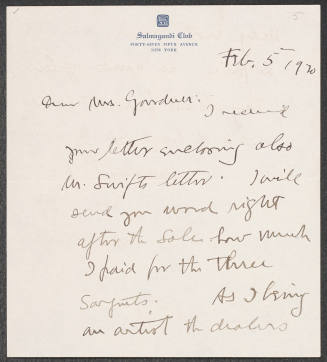 5
Salmagundi Club
FORTY-SEVEN FIFTH AVENUE
NEW YORK
Feb. 5 1920
Dear Mrs. Gardner:
I received
your letter enclosing also
Mr. Swifts letter. I will
send you word right
after the Sale how much
I paid for the three
Sargents. As I being
an artist the dealers